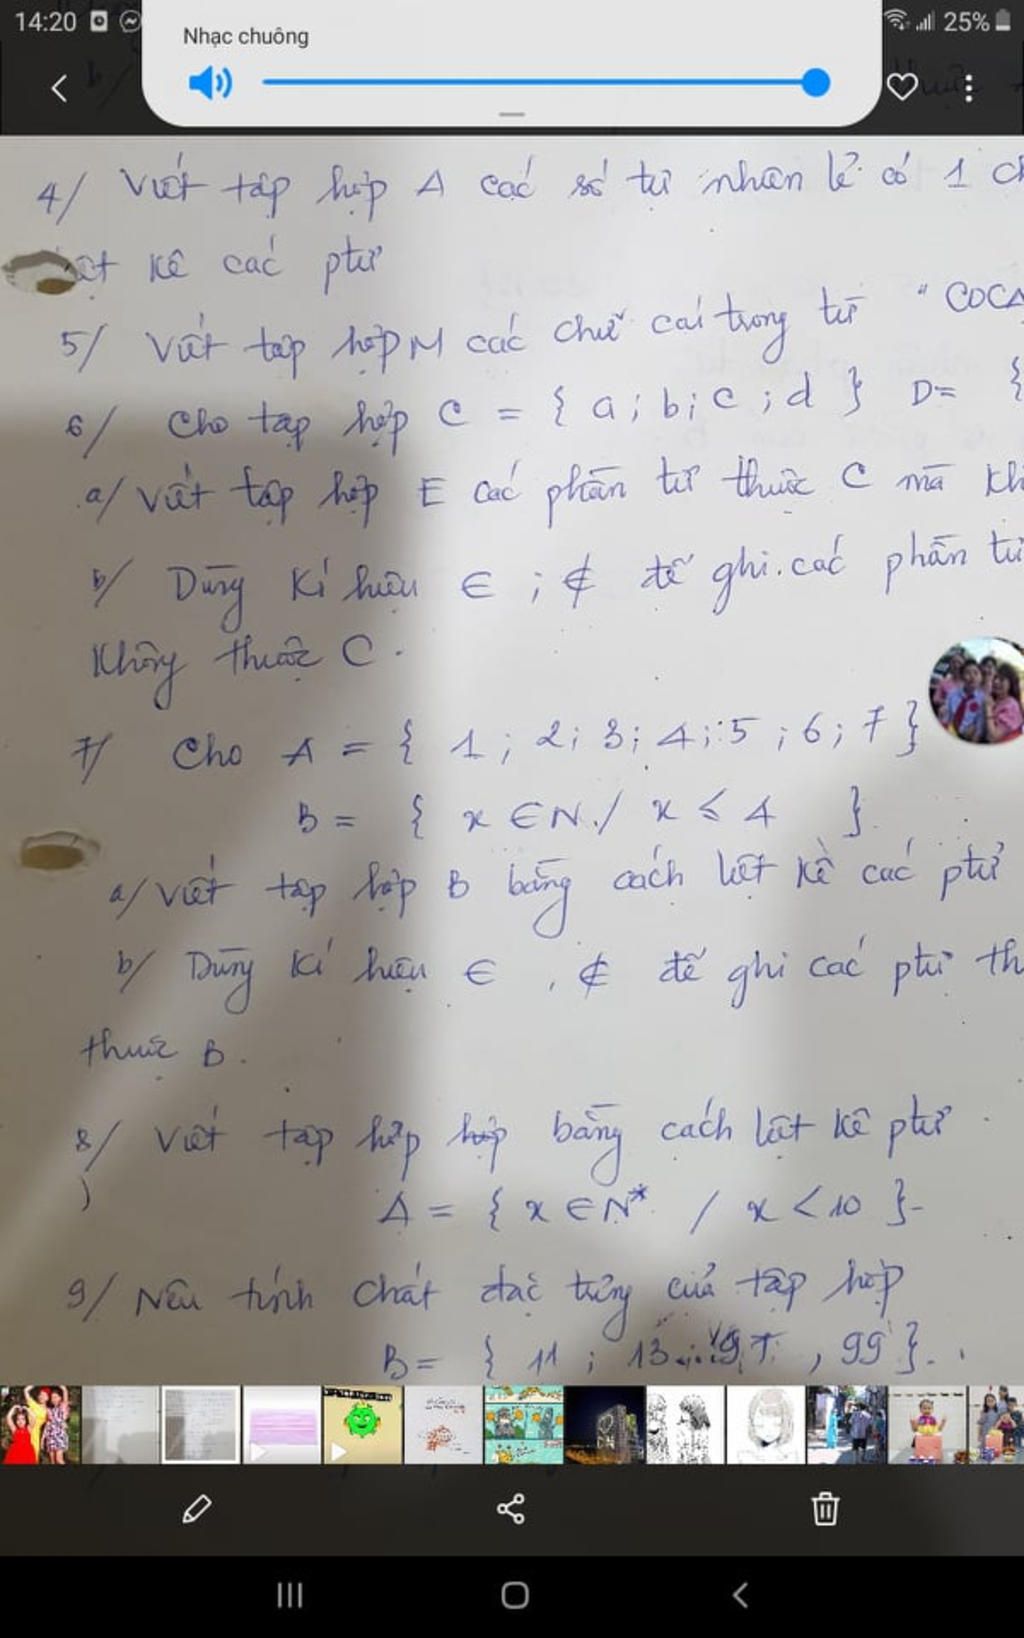 14:20
Nhạc chuông
25%
4/ Viết tập hợp A các số tự nhiên lẻ có 1 ch
kê các ptử
5/ Viết tập hợp M các chữ cái trong từ "COCA
6/ Cho tập hợp C = { a ; b ; c ; d } D = {
a/ Viết tập hợp E các phần tử thuộc C mà kh
b/ Dùng kí hiệu ∈ ; ∉ để ghi các phần tử
không thuộc C.
7/ Cho A = { 1 ; 2 ; 3 ; 4 ; 5 ; 6 ; 7 }
B = { x ∈ N / x ≤ 4 }
a/ Viết tập hợp B bằng cách liệt kê các ptử
b/ Dùng kí hiệu ∈ , ∉ để ghi các ptử th
thuộc B.
8/ Viết tập hợp hợp bằng cách liệt kê ptử
A = { x ∈ N* / x < 10 }
9/ Nêu tính chất đặc trưng của tập hợp
B = { 11 ; 13 ... 97 , 99 }.